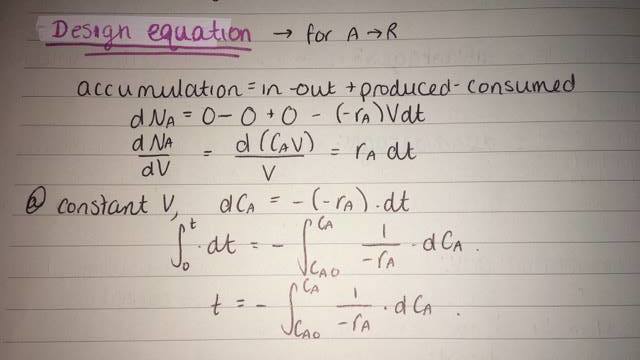 Design equation → for A → R
accumulation = in - out + produced - consumed
dN_A = 0 - 0 + 0 - (-r_A)Vdt
dN_A/dV = d(C_A V)/V = r_A dt
@ constant V, dC_A = -(-r_A)·dt
∫_0^t ·dt = -∫_{C_A0}^{C_A} 1/-r_A · dC_A.
t = -∫_{C_A0}^{C_A} 1/-r_A · dC_A.